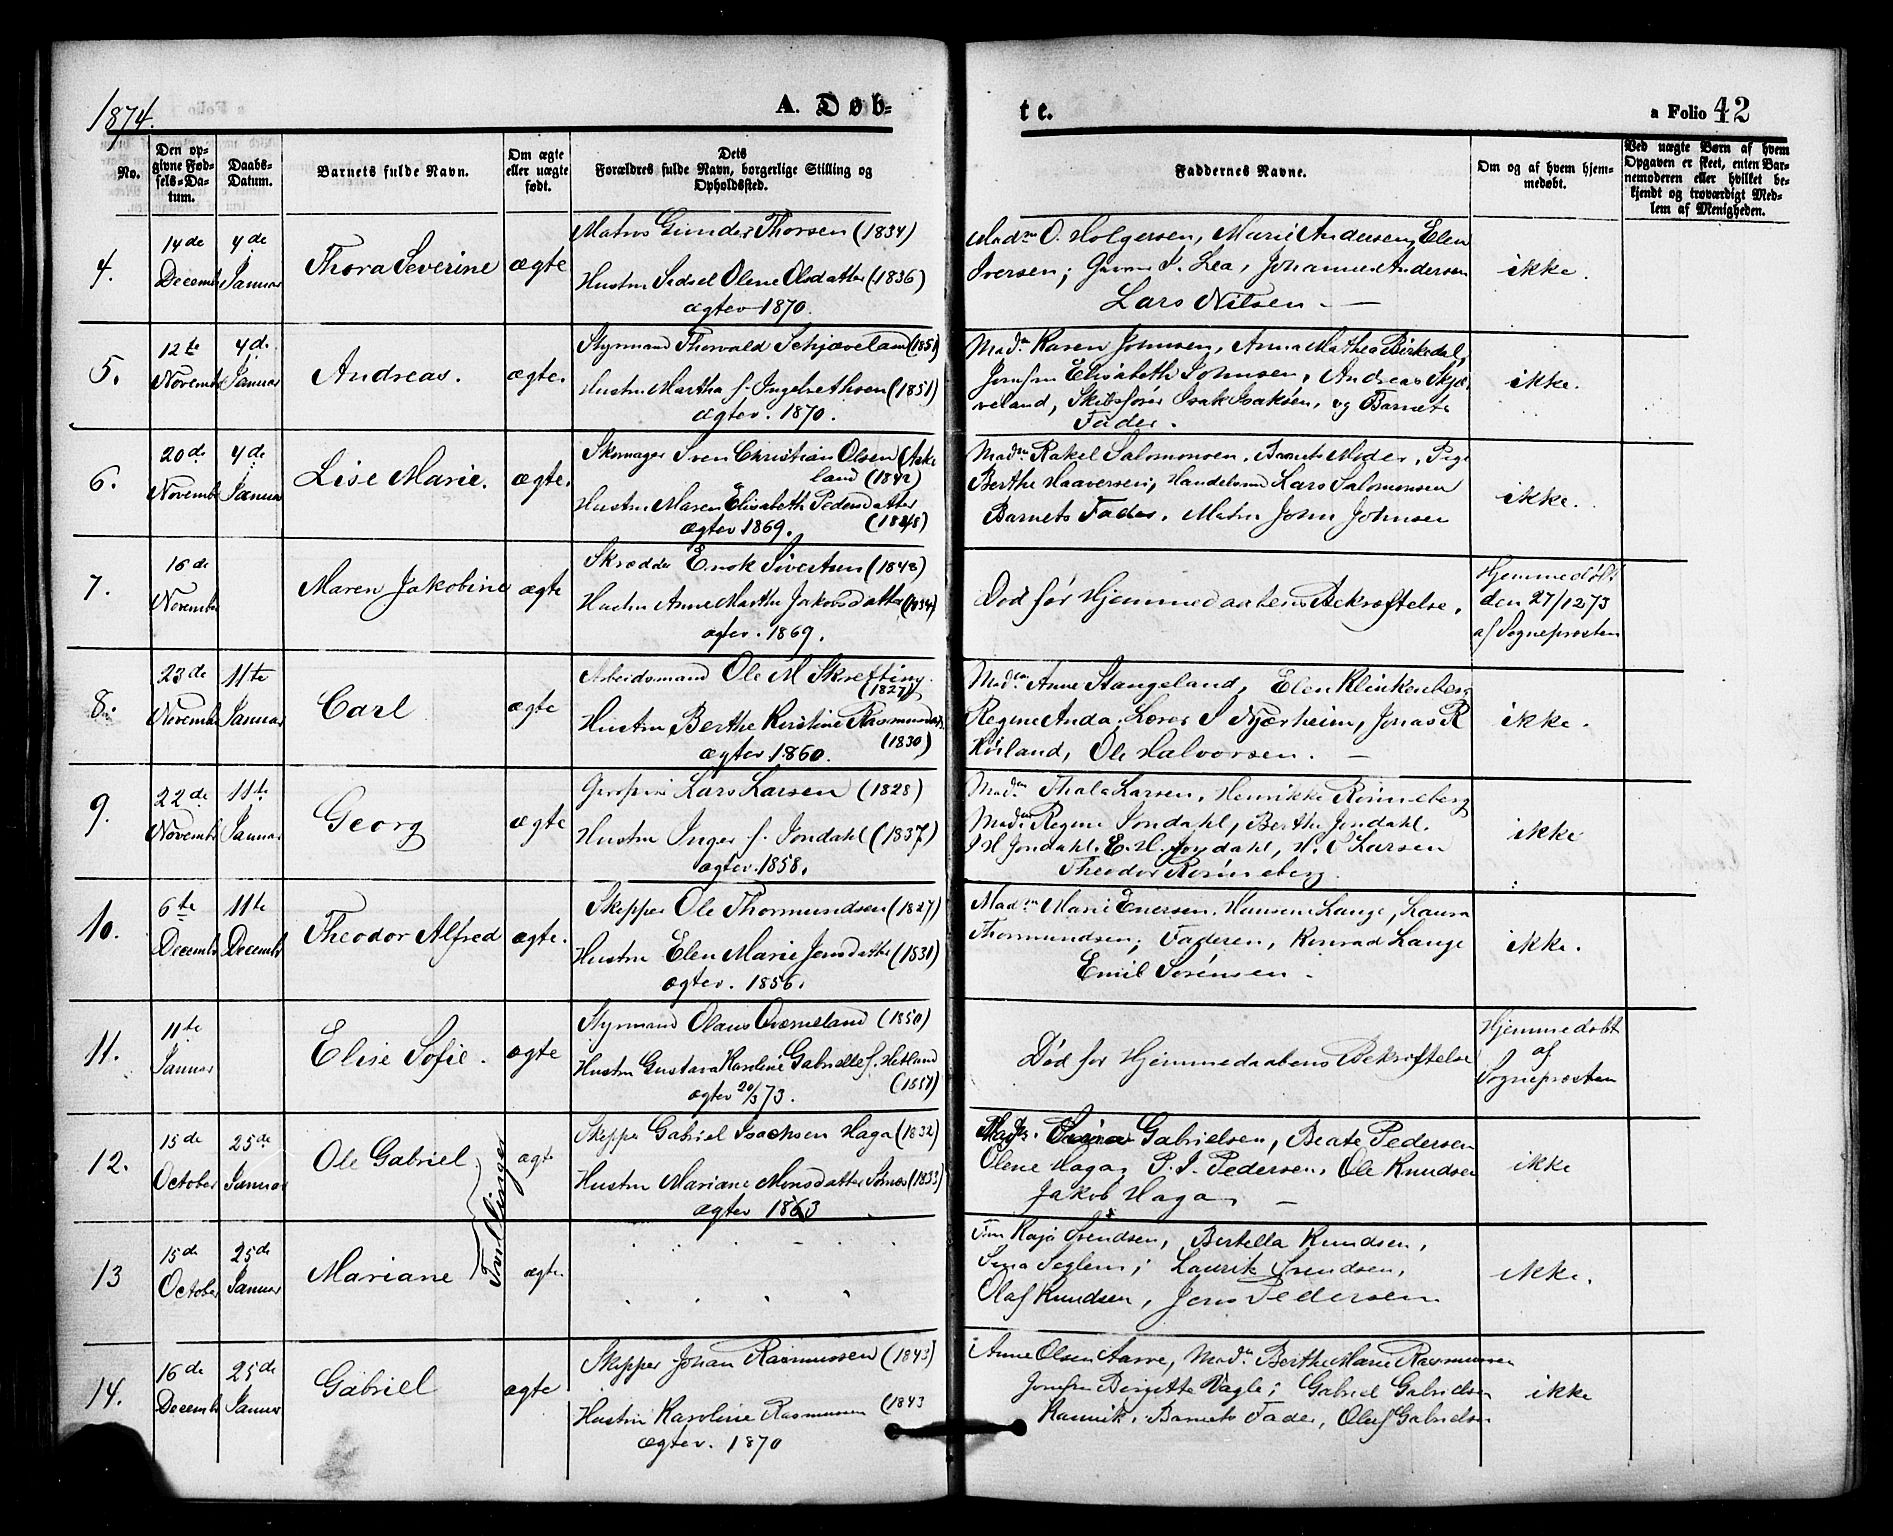 1874.
A. Døb-
te.
a Folio 42
No.
Den op-
givne Fød-
sels-Da-
tum.
Daabs-
Datum.
Barnets fulde Navn.
Om ægte
eller uægte
født.
Dets
Forældres fulde Navn, borgerlige Stilling og
Opholdssted.
Faddernes Navne.
Om og af hvem hjem-
medøbt.
Ved uægte Børn af hvem
Opgaven er skeet, enten Bar-
nemoderen eller hvilket be-
kjendt og troværdigt Med-
lem af Menigheden.
4.
14de
Decemb
4de
Januar
Thora Severine
ægte
Matros Gunder Thorsen (1834)
Hustru Sidsel Olene Olsdatter (1836)
ægtev 1870.
Madm O. Holgersen, Marie Andersen, Elen
Iversen; S. Lea, Johannes Andersen
Lars Nilsen. —
ikke.
5.
12te
Novemb
4de
Januar
Andreas.
ægte.
Styrmand Thorvald Schjæveland (1851)
Hustru Martha f. Ingebrethsen (1851)
ægtev. 1870.
Madm. Karen Johnsen, Anna Mathea Birkedal,
Jomfru Elisabeth Johnsen, Andreas Skjæ-
veland, Skibsfører Isak Isaksen, og Barnets
Fader.
ikke.
6.
20de
Novemb
4de
Januar
Lise Marie.
ægte.
Skomager Sven Christian Olsen (Aske
land (1842)
Hustru Maren Elisabeth Pedersdatter
ægtev 1869. (1848)
Madm Rakel Salomonsen, Barnets Moder, Pige
Berthe Haaversen; Handelsmd Lars Salomonsen
Barnets Fader, Matr John Johnsen
ikke.
7.
16de
Novemb
Maren Jakobine
ægte
Skrædder Enok Sivertsen (1848)
Hustru Anne Marthe Jakobsdatter (1834)
ægtev. 1869.
Død før Hjemmedaabens Bekræftelse.
Hjemmedøbt
den 27/12 73
af Sogneprosten
8.
23de
Novemb
11te
Januar
Carl
ægte
Arbeidsmand Ole M Skretting
(1827)
Hustru Berthe Kirstine Rasmusdat.
ægtev 1860. (1830)
Madm. Anne Stangeland, Elen Klinkenberg
Regine Anda, Lærer S Njærheim, Jonas R
Hørland, Ole Halvorsen. —
ikke.
9.
22de
Novemb
11te
Januar
Georg
ægte
Lars Larsen (1828)
Hustru Inger f. Jondahl (1837)
ægtev. 1858.
Madm. Thala Larsen, Henrikke Rønneberg
Madm Regine Jondahl, Berthe Jondahl.
J H Jondahl, E. H. Jondahl, H. C Larsen
Theodor Rønneberg.
ikke
10.
6te
Decemb
11te
Decemb
Theodor Alfred
ægte.
Skipper Ole Thormundsen (1827)
Hustru Elen Marie Jensdatter (1831)
ægtev. 1856.
Madm Marie Enersen, Hansine Lange, Laura
Thormundsen; Faderen, Konrad Lange
Emil Sørensen.
ikke.
11.
11te
Januar
Elise Sofie.
ægte
Styrmand Olaus Qvæneland (1850)
Hustru Gustava Karoline Gabrielle f. Hetland
ægtev 20/3 73. (1851)
Død før Hjemmedaabens Bekræftelse
Hjemmedøbt
af
Sogneprosten
12.
15de
October
25de
Januar
Ole Gabriel
Tvillinger
ægte
Skipper Gabriel Isachsen Haga (1832)
Hustru Mariane Monsdatter (1833)
ægtev 1863
Gabrielsen, Beate Pedersen
Olene Haga, P. J. Pedersen, Ole Knudsen
Jakob Haga —
ikke
13
15de
October
25de
Januar
Mariane
ægte.
Kaja Svendsen, Bertella Knudsen,
Sina Seglem; Laurits Svendsen,
Olaf Knudsen, Jens Pedersen
ikke.
14.
16de
Decemb
25de
Januar
Gabriel
ægte
Skipper Johan Rasmussen (1843)
Hustru Karoline Rasmussen (1843
ægtev. 1870
Anne Olsen Aarre, Madm. Berthe Marie Rasmussen
Jomfru Birgitte Vagle; Gabriel Gabrielsen
Rannik, Barnets Fader, Oluf Gabrielsen
ikke